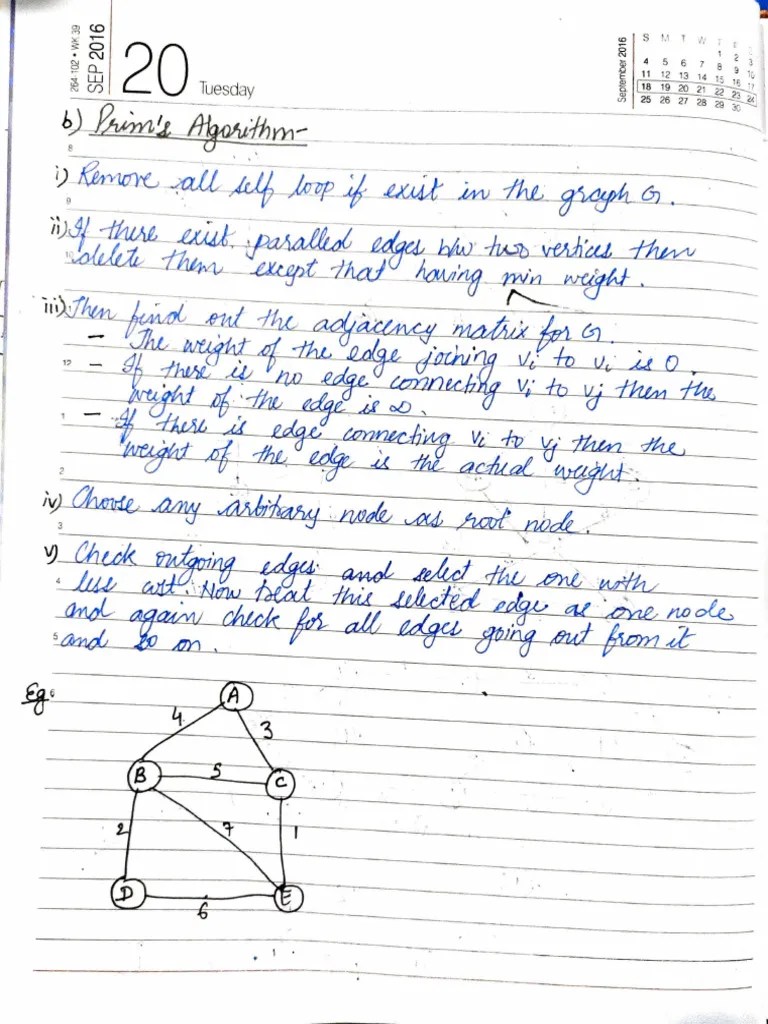 264-102 • WK 39
SEP 2016
20 Tuesday
September 2016
S M T W T F S
1 2 3
4 5 6 7 8 9 10
11 12 13 14 15 16 17
18 19 20 21 22 23 24
25 26 27 28 29 30
b) Prim's Algorithm-
8
i) Remove all self loop if exist in the graph G.
9
ii) If there exist paralled edges b/w two vertices then
10 delete them except that having min weight.
iii) Then find out the adjacency matrix for G.
- The weight of the edge joining vi to vi is 0.
12 - If there is no edge connecting vi to vj then the
weight of the edge is ∞.
1 - If there is edge connecting vi to vj then the
weight of the edge is the actual weight.
2
iv) Choose any arbitrary node as root node.
3
v) Check outgoing edges and select the one with
4 less cost. Now treat this selected edge as one node
and again check for all edges going out from it
5 and so on.
Eg:
A
4 3
B 5 C
2 7 1
D E
6